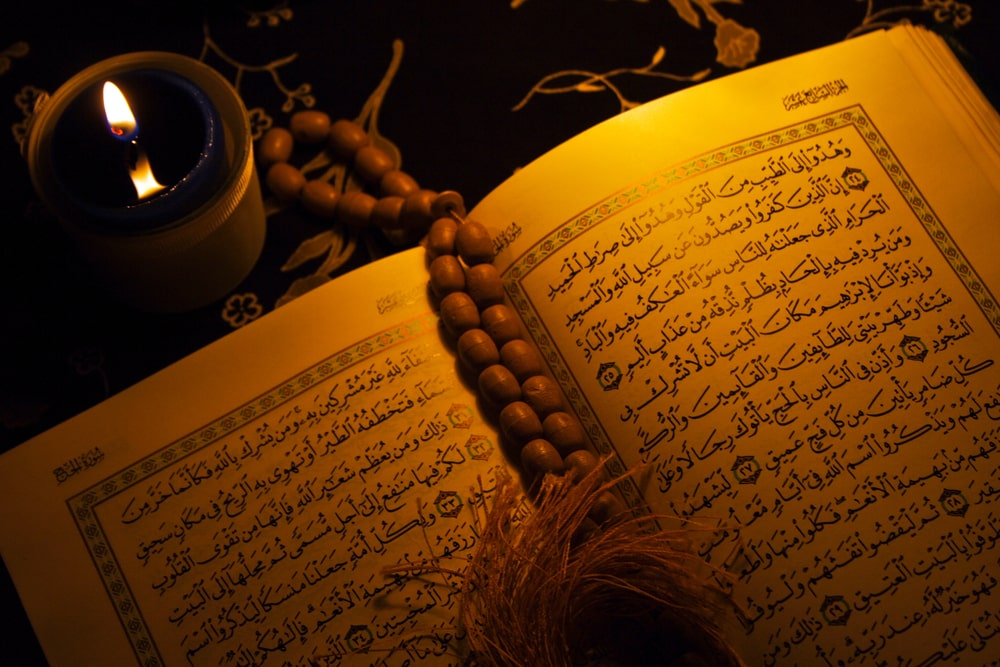 الجزء السابع عشر
سورة الحج
وَهُدُوٓا۟ إِلَى ٱلطَّيِّبِ مِنَ ٱلْقَوْلِ وَهُدُوٓا۟ إِلَىٰ صِرَٰطِ ٱلْحَمِيدِ
٢٤ إِنَّ ٱلَّذِينَ كَفَرُوا۟ وَيَصُدُّونَ عَن سَبِيلِ ٱللَّهِ وَٱلْمَسْجِدِ
ٱلْحَرَامِ ٱلَّذِى جَعَلْنَٰهُ لِلنَّاسِ سَوَآءً ٱلْعَٰكِفُ فِيهِ وَٱلْبَادِ
وَمَن يُرِدْ فِيهِ بِإِلْحَادٍۭ بِظُلْمٍ نُّذِقْهُ مِنْ عَذَابٍ أَلِيمٍ ٢٥
وَإِذْ بَوَّأْنَا لِإِبْرَٰهِيمَ مَكَانَ ٱلْبَيْتِ أَن لَّا تُشْرِكْ بِى
شَيْـًٔا وَطَهِّرْ بَيْتِىَ لِلطَّآئِفِينَ وَٱلْقَآئِمِينَ وَٱلرُّكَّعِ
ٱلسُّجُودِ ٢٦ وَأَذِّن فِى ٱلنَّاسِ بِٱلْحَجِّ يَأْتُوكَ رِجَالًا وَعَلَىٰ
كُلِّ ضَامِرٍ يَأْتِينَ مِن كُلِّ فَجٍّ عَمِيقٍ ٢٧ لِّيَشْهَدُوا۟
لَهُمْ وَيَذْكُرُوا۟ ٱسْمَ ٱللَّهِ فِىٓ أَيَّامٍ
مِّنۢ بَهِيمَةِ ٱلْأَنْعَٰمِ فَكُلُوا۟ مِنْهَا
٢٨ ثُمَّ لْيَقْضُوا۟ تَفَثَهُمْ وَلْيُوفُوا۟
بِٱلْبَيْتِ ٱلْعَتِيقِ ٢٩ ذَٰلِكَ وَمَن
فَهُوَ خَيْرٌ لَّهُۥ عِندَ رَبِّهِۦ
سورة الحج
حُنَفَآءَ لِلَّهِ غَيْرَ مُشْرِكِينَ بِهِۦ وَمَن يُشْرِكْ بِٱللَّهِ فَكَأَنَّمَا خَرَّ مِنَ
ٱلسَّمَآءِ فَتَخْطَفُهُ ٱلطَّيْرُ أَوْ تَهْوِى بِهِ ٱلرِّيحُ فِى مَكَانٍ سَحِيقٍ
ذَٰلِكَ وَمَن يُعَظِّمْ شَعَٰٓئِرَ ٱللَّهِ فَإِنَّهَا مِن تَقْوَى ٱلْقُلُوبِ
لَكُمْ فِيهَا مَنَٰفِعُ إِلَىٰٓ أَجَلٍ مُّسَمًّى ثُمَّ مَحِلُّهَآ إِلَى ٱلْبَيْتِ
٣٣ وَلِكُلِّ أُمَّةٍ جَعَلْنَا مَنسَكًا لِّيَذْكُرُوا۟ ٱسْمَ
بَهِيمَةِ ٱلْأَنْعَٰمِ فَإِلَٰهُكُمْ
ٱلْمُخْبِتِينَ ٣٤